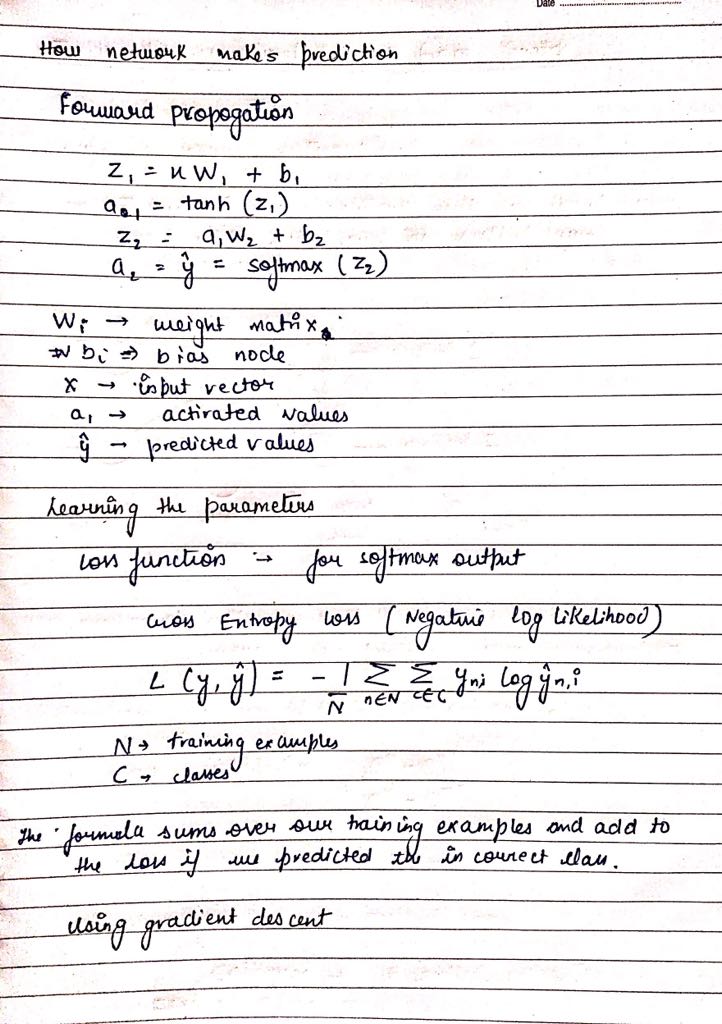 Date
How network makes prediction
Forward propogation
Z₁ = x W₁ + b₁
a₁ = tanh (Z₁)
Z₂ = a₁W₂ + b₂
a₂ = ŷ = softmax (Z₂)
Wᵢ → weight matrix
bᵢ ⇒ bias node
x → input vector
a₁ → activated values
ŷ → predicted values
Learning the parameters
Loss function → for softmax output
Cross Entropy Loss (Negative log likelihood)
L (y, ŷ) = - 1/N Σ n∈N Σ c∈C yn,i log ŷn,i
N → training examples
C → classes
The formula sums over our training examples and add to
the loss if we predicted the in correct class.
Using gradient descent